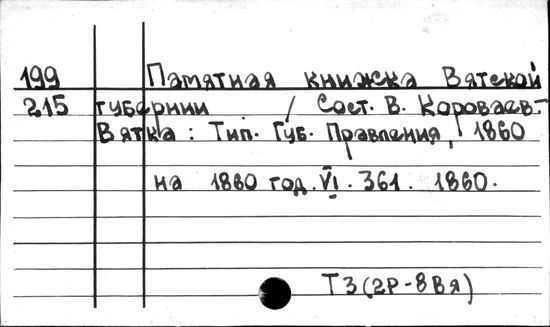 199 Памятная книжка Вятской
215 губернии / Сост. В. Короваев-
Вятка: Тип. Губ. Правления, 1860
на 1860 год. VI. 361. 1860.
Т3(2Р-8Вя)